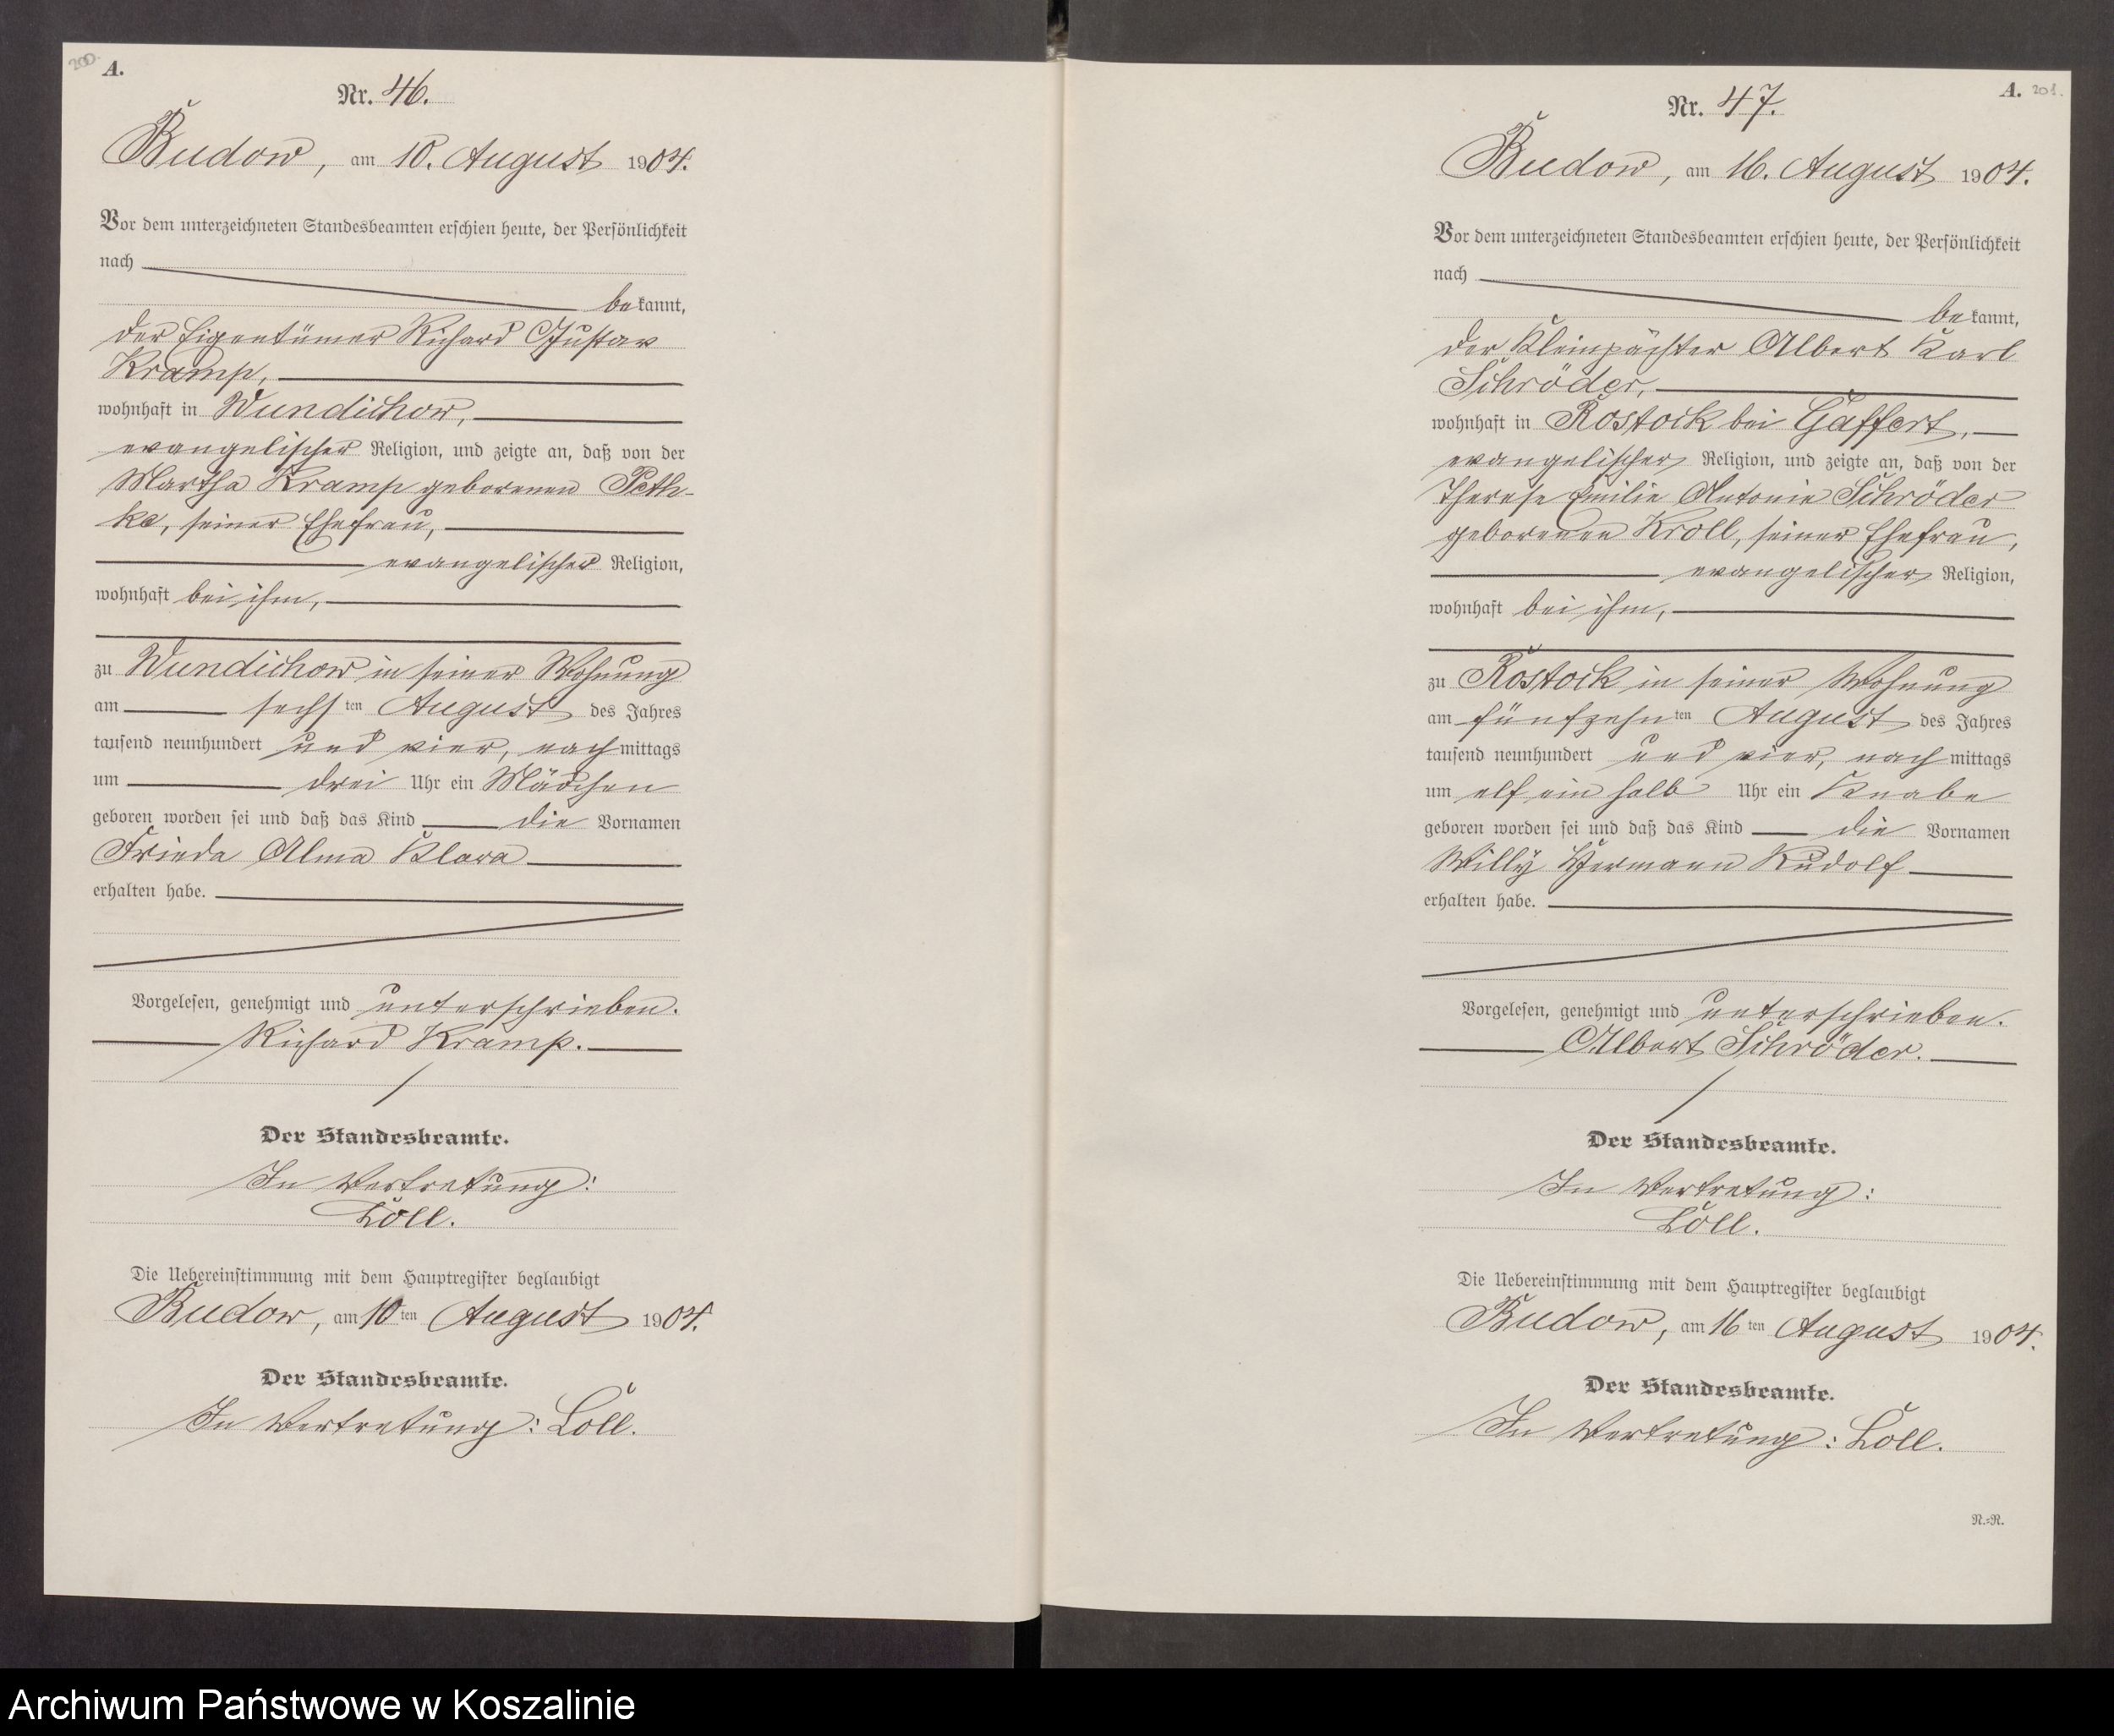 200.
A.
Nr. 46.
Budow, am 10. August 1904.
Vor dem unterzeichneten Standesbeamten erschien heute, der Persönlichkeit
nach
bekannt,
der Eigentümer Richard Gustav
Kramp,
wohnhaft in Wundichow,
evangelischer Religion, und zeigte an, daß von der
Martha Kramp geborenen Peth-
ke, seiner Ehefrau,
evangelischer Religion,
wohnhaft bei ihm,
zu Wundichow in seiner Wohnung
am sechsten August des Jahres
tausend neunhundert und vier, nachmittags
um drei Uhr ein Mädchen
geboren worden sei und daß das Kind die Vornamen
Frieda Alma Klara
erhalten habe.
Vorgelesen, genehmigt und unterschrieben.
Richard Kramp.
Der Standesbeamte.
In Vertretung:
Loll.
Die Uebereinstimmung mit dem Hauptregister beglaubigt
Budow, am 10ten August 1904.
Der Standesbeamte.
In Vertretung: Loll.
A. 201.
Nr. 47.
Budow, am 16. August 1904.
Vor dem unterzeichneten Standesbeamten erschien heute, der Persönlichkeit
nach
bekannt,
der Kleinpächter Albert Karl
Schröder,
wohnhaft in Rostock bei Gaffert,
evangelischer Religion, und zeigte an, daß von der
Therese Emilie Antonie Schröder
geborenen Kroll, seiner Ehefrau,
evangelischer Religion,
wohnhaft bei ihm,
zu Rostock in seiner Wohnung
am fünfzehnten August des Jahres
tausend neunhundert und vier, nachmittags
um elf ein halb Uhr ein Knabe
geboren worden sei und daß das Kind die Vornamen
Willy Hermann Rudolf
erhalten habe.
Vorgelesen, genehmigt und unterschrieben.
Albert Schröder.
Der Standesbeamte.
In Vertretung:
Loll.
Die Uebereinstimmung mit dem Hauptregister beglaubigt
Budow, am 16ten August 1904.
Der Standesbeamte.
In Vertretung: Loll.
N.=R.
Archiwum Państwowe w Koszalinie